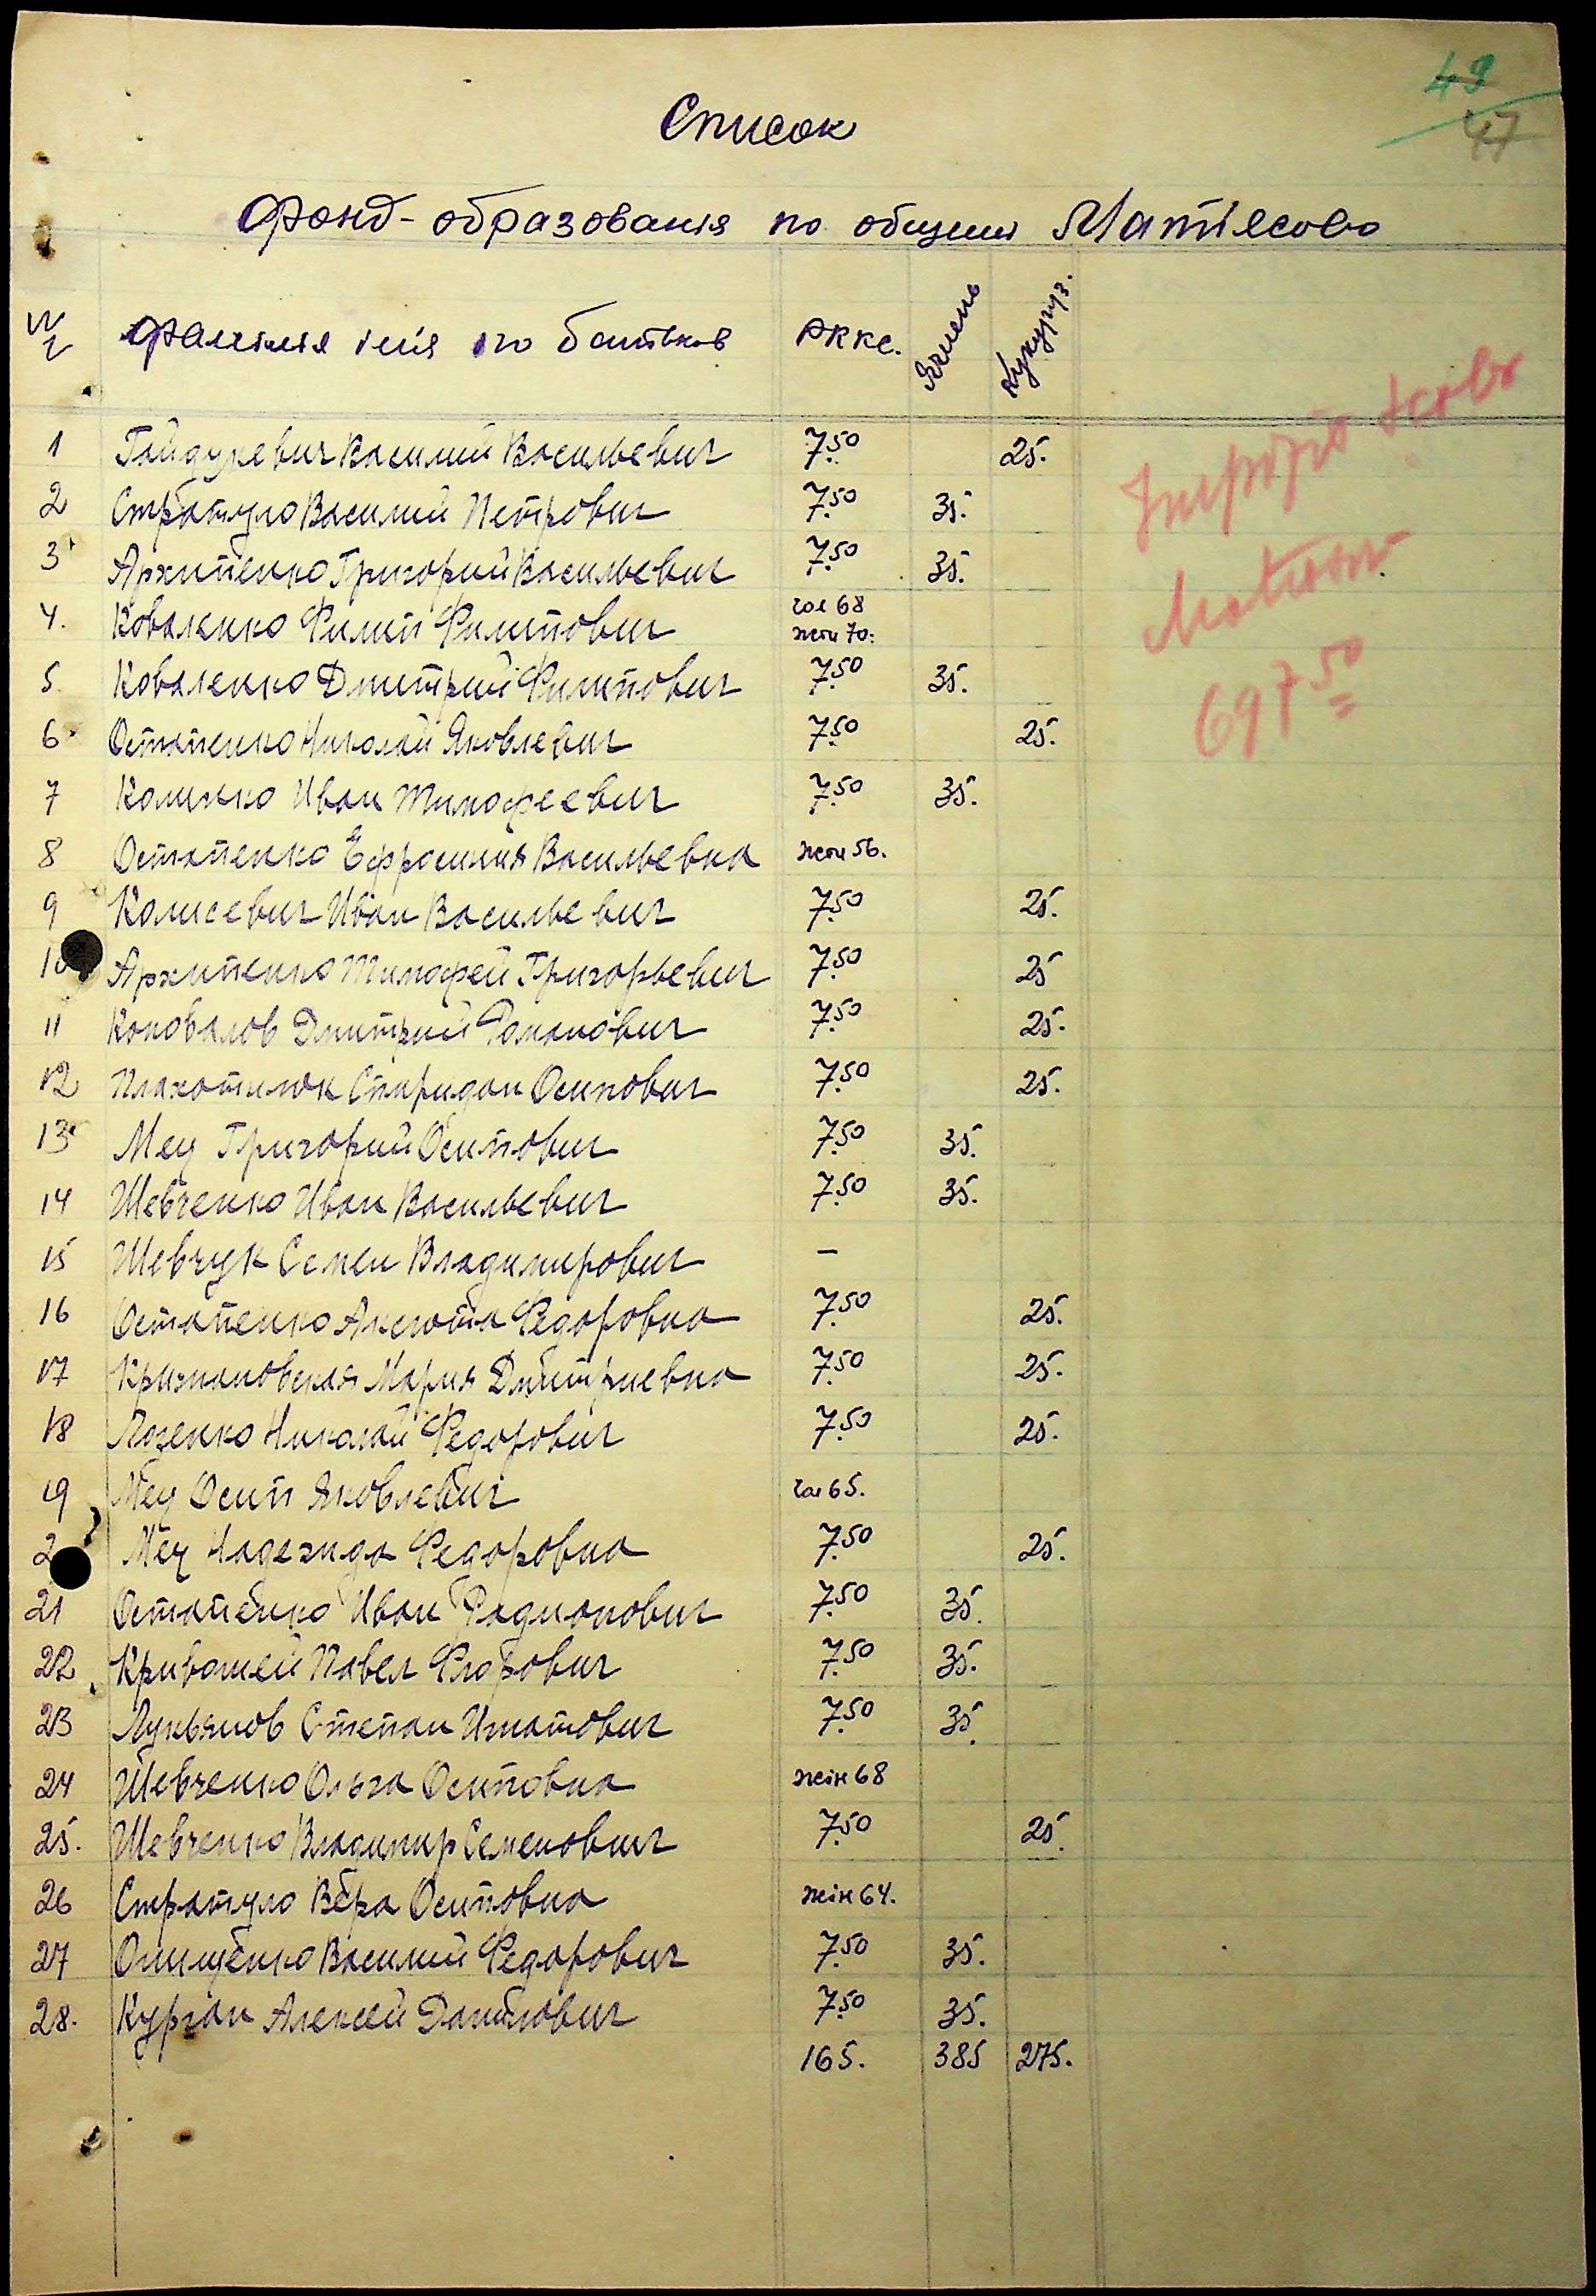 49
47
Список
Фонд-образованія по общині Матіясово
№ Фамілія імія по батьков РККС. Ячмень Кукуруз.
1 Гайдукевич Василий Васильевич 7.50 25.
2 Стратуло Василий Петрович 7.50 35.
3 Архипенко Григорий Васильевич 7.50 35.
4. Коваленко Филип Филипович чол 68
жон 70.
5. Коваленко Дмитрий Филипович 7.50 35.
6. Остапенко Николай Яковлевич 7.50 25.
7 Калинко Иван Тимофеевич 7.50 35.
8 Остапенко Ефросиния Васильевна жон 56.
9 Колисевич Иван Васильевич 7.50 25.
10 Архипенко Тимофей Григорьевич 7.50 25
11 Коновалов Дмитрий Романович 7.50 25.
12 Плахотнюк Спиридон Осипович 7.50 25.
13 Мец Григорий Осипович 7.50 35.
14 Шевченко Иван Васильевич 7.50 35.
15 Шевчук Семен Владимирович —
16 Остапенко Аксюта Федоровна 7.50 25.
17 Крижановская Мария Дмитриевна 7.50 25.
18 Лозенко Николай Федорович 7.50 25.
19 Мец Осип Яковлевич чол 65.
2 Мец Надежда Федоровна 7.50 25.
21 Остапенко Иван Радионович 7.50 35.
22 Кривошей Павел Флорович 7.50 35.
23 Лукьянов Степан Игнатович 7.50 35.
24 Шевченко Ольга Осиповна жін 68
25. Шевченко Владимир Семенович 7.50 25.
26 Стратуло Вера Осиповна жін 64.
27 Онищенко Василий Федорович 7.50 35.
28. Курган Алексей Данилович 7.50 35.
165. 385 275.
697 50